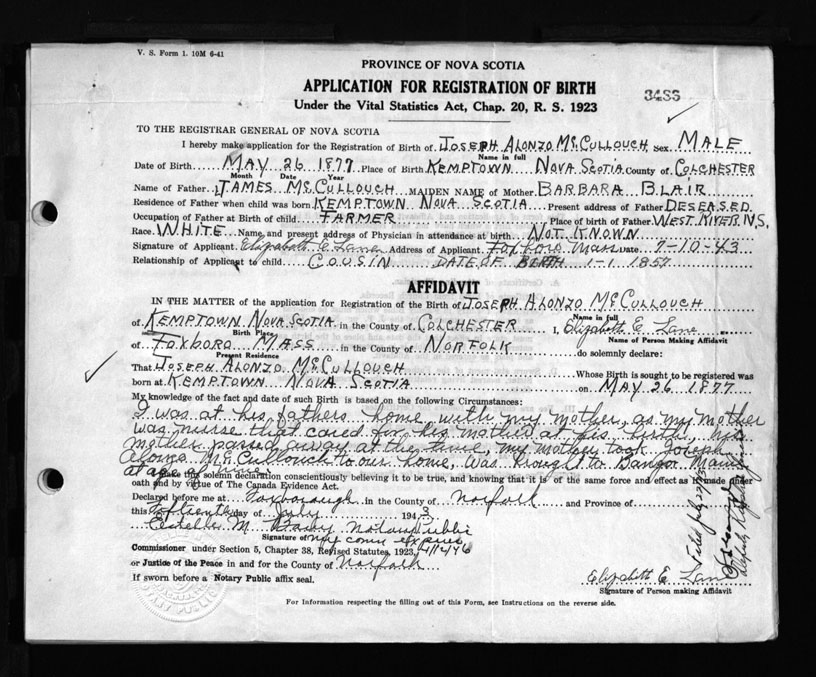 V. S. Form 1. 10M 6-41
PROVINCE OF NOVA SCOTIA
APPLICATION FOR REGISTRATION OF BIRTH
Under the Vital Statistics Act, Chap. 20, R. S. 1923
TO THE REGISTRAR GENERAL OF NOVA SCOTIA
I hereby make application for the Registration of Birth of JOSEPH ALONZO MCCULLOUCH Sex MALE
Name in full
Date of Birth MAY 26 1877 Place of Birth KEMPTOWN NOVA SCOTIA County of COLCHESTER
Month Date Year
Name of Father JAMES MCCULLOUCH MAIDEN NAME of Mother BARBARA BLAIR
Residence of Father when child was born KEMPTOWN NOVA SCOTIA Present address of Father DESEASED
Occupation of Father at Birth of child FARMER Place of birth of Father WEST RIVER N.S.
Race WHITE Name and present address of Physician in attendance at birth NOT KNOWN
Signature of Applicant Elizabeth E Lane Address of Applicant Foxboro Mass Date 7-10-43
Relationship of Applicant to child COUSIN DATE OF BIRTH 1-1 1857
AFFIDAVIT
IN THE MATTER of the application for Registration of the Birth of JOSEPH ALONZO MCCULLOUCH
Name in full
of KEMPTOWN NOVA SCOTIA in the County of COLCHESTER I, Elizabeth E. Lane
Birth Place Name of Person Making Affidavit
of FOXBORO MASS in the County of NORFOLK do solemnly declare:
Present Residence
That JOSEPH ALONZO MCCULLOUCH Whose Birth is sought to be registered was
born at KEMPTOWN NOVA SCOTIA on MAY 26 1877
My knowledge of the fact and date of such Birth is based on the following Circumstances:
I was at his fathers home with my mother, as my mother
was nurse that cared for his mother at his birth, his
mother passed away at the time, my mother took Joseph
Alonzo McCullouch to our home, was brought to Bangor Maine
at age of
I make this solemn declaration conscientiously believing it to be true, and knowing that it is of the same force and effect as if made under
oath and by virtue of The Canada Evidence Act.
Declared before me at Foxborough in the County of Norfolk and Province of
this Fifteenth day of July 1943
Estelle M. Notary Public
Signature of my com expires
Commissioner under Section 5, Chapter 38, Revised Statutes, 1923, 4/14/46
or Justice of the Peace in and for the County of Norfolk
If sworn before a Notary Public affix seal.
Elizabeth E. Lane
Signature of Person making Affidavit
For Information respecting the filling out of this Form, see Instructions on the reverse side.